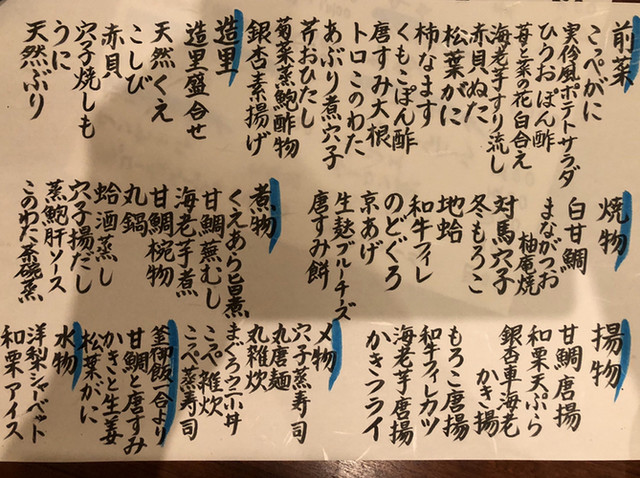 前菜
こっぺがに
実伶風ポテトサラダ
ひうおぽん酢
苺と菜の花白合え
海老芋すり流し
赤貝ぬた
松葉がに
柿なます
くもこぽん酢
唐すみ大根
トロこのわた
あぶり煮穴子
芹おひたし
菊菜蒸鮑酢物
銀杏素揚げ
造里
造里盛合せ
天然くえ
こしび
赤貝
穴子焼しも
うに
天然ぶり
焼物
白甘鯛
まながつお
柚庵焼
対馬穴子
冬もろこ
地蛤
和牛フィレ
のどぐろ
京あげ
生麸ブルーチーズ
唐すみ餅
煮物
くえあら旨煮
甘鯛蕪むし
海老芋煮
甘鯛椀物
丸鍋
蛤酒蒸し
穴子揚だし
蒸鮑肝ソース
このわた茶碗蒸
揚物
甘鯛唐揚
和栗天ぷら
銀杏車海老
かき揚
もろこ唐揚
和牛フィレカツ
海老芋唐揚
かきフライ
〆物
穴子蒸寿司
丸唐麺
丸雑炊
まぐろ小丼
こっぺ雑炊
こっぺ蒸寿司
釜御飯一合より
甘鯛と唐すみ
かきと生姜
松葉がに
水物
洋梨シャーベット
和栗アイス